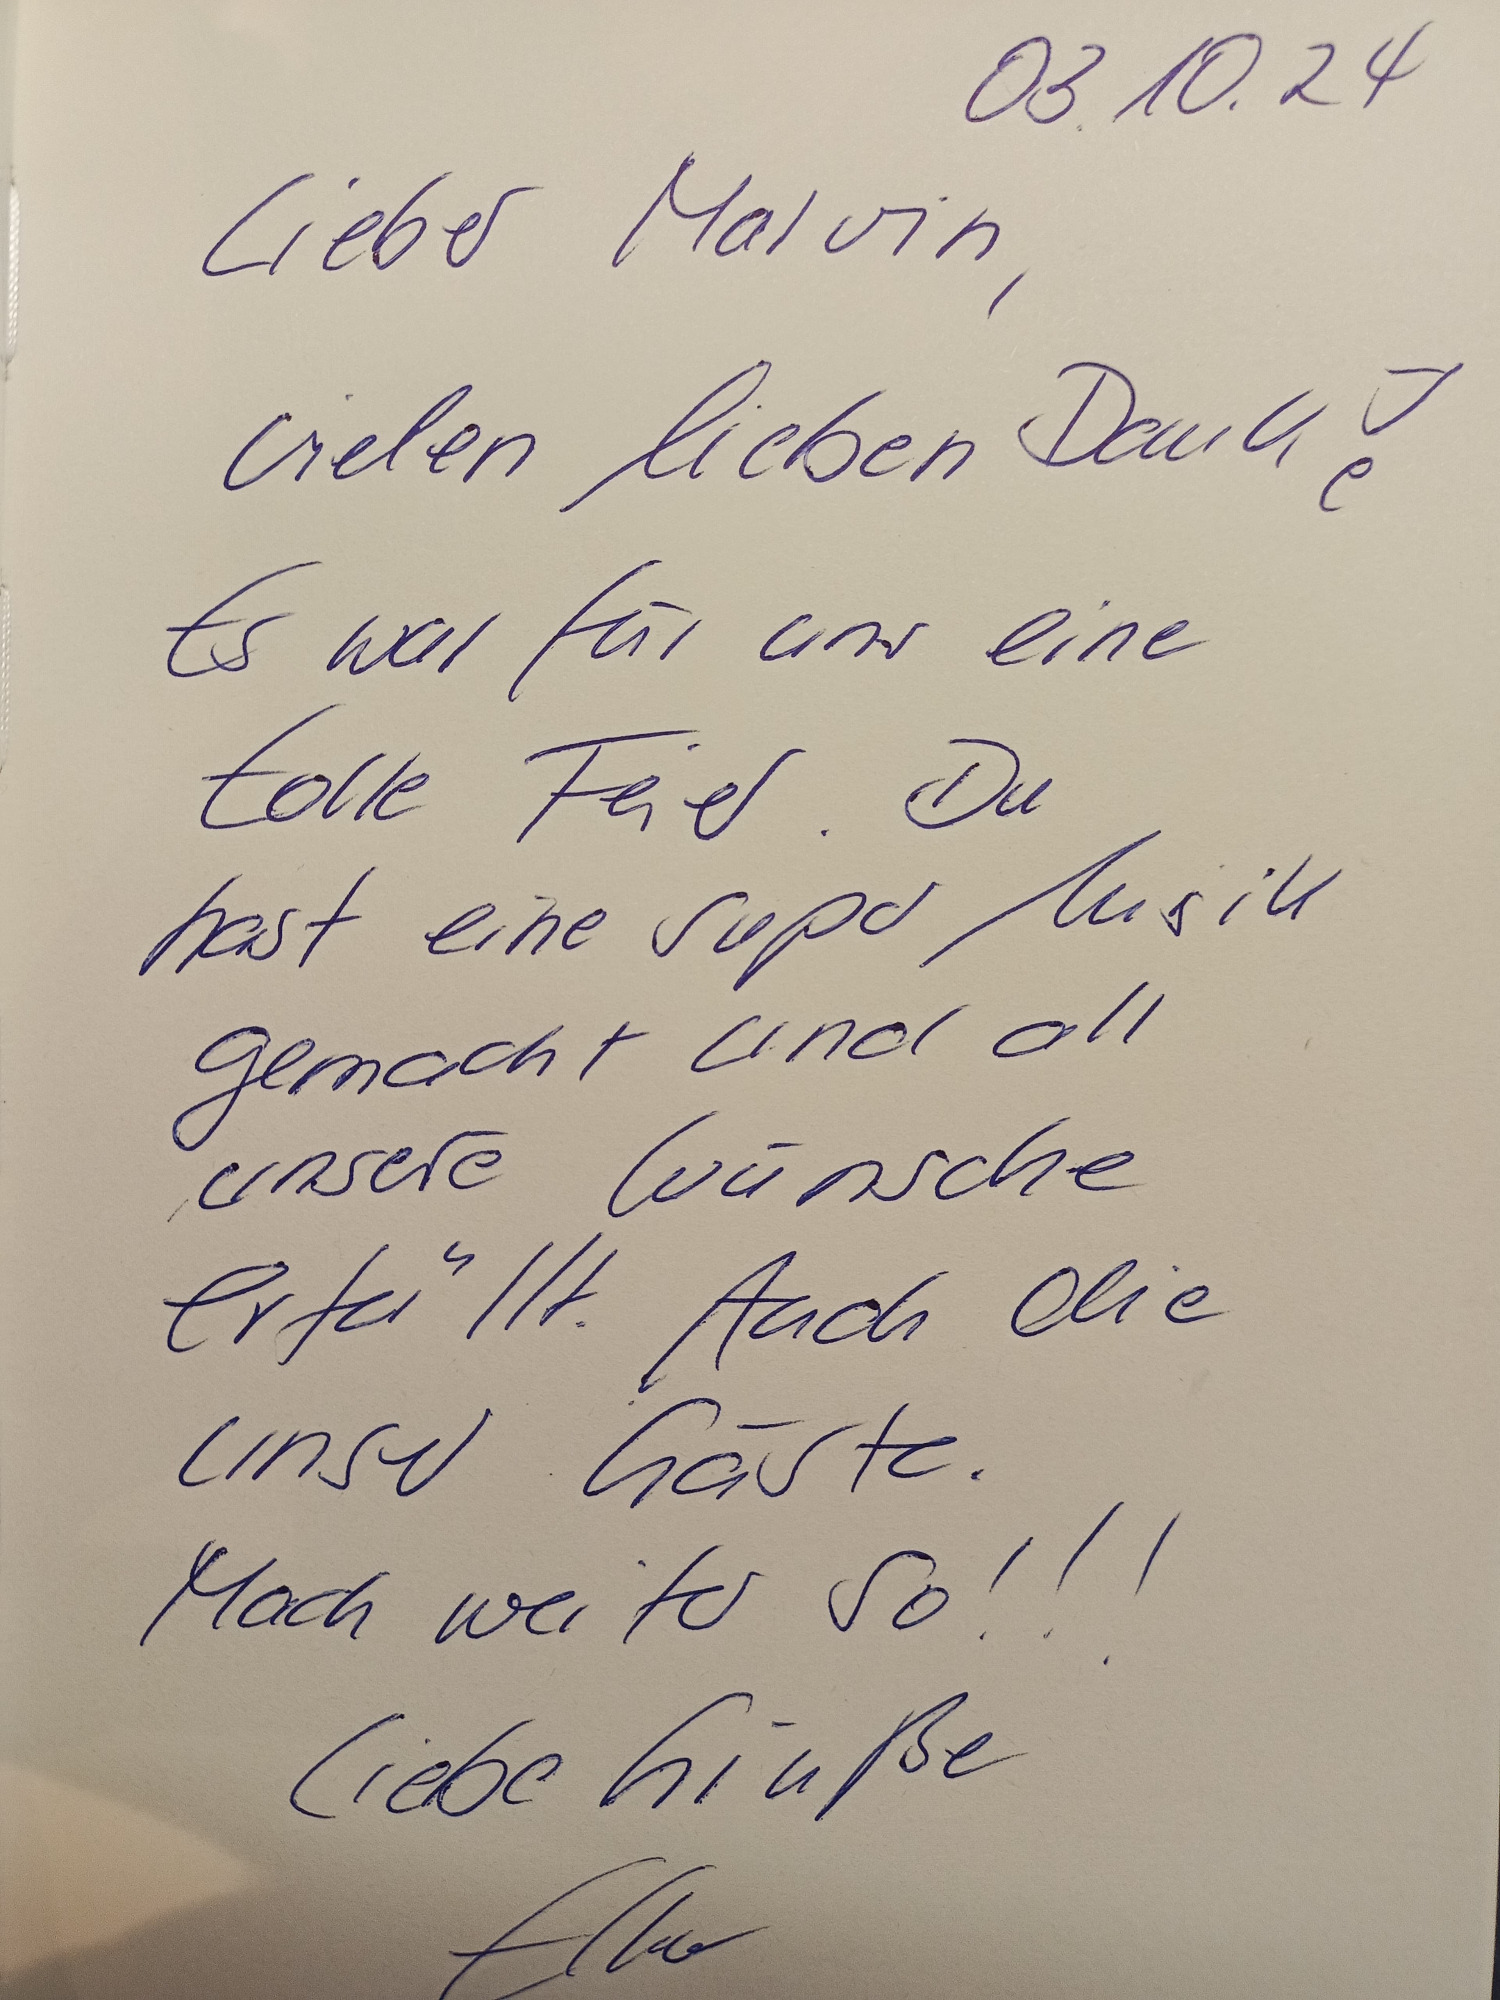 03.10.24
Lieber Marvin,
vielen lieben Dank!
Es war für uns eine
tolle Feier. Du
hast eine super Musik
gemacht und all
unsere Wünsche
erfüllt. Auch die
unser Gäste.
Mach weiter so!!!
Liebe Grüße